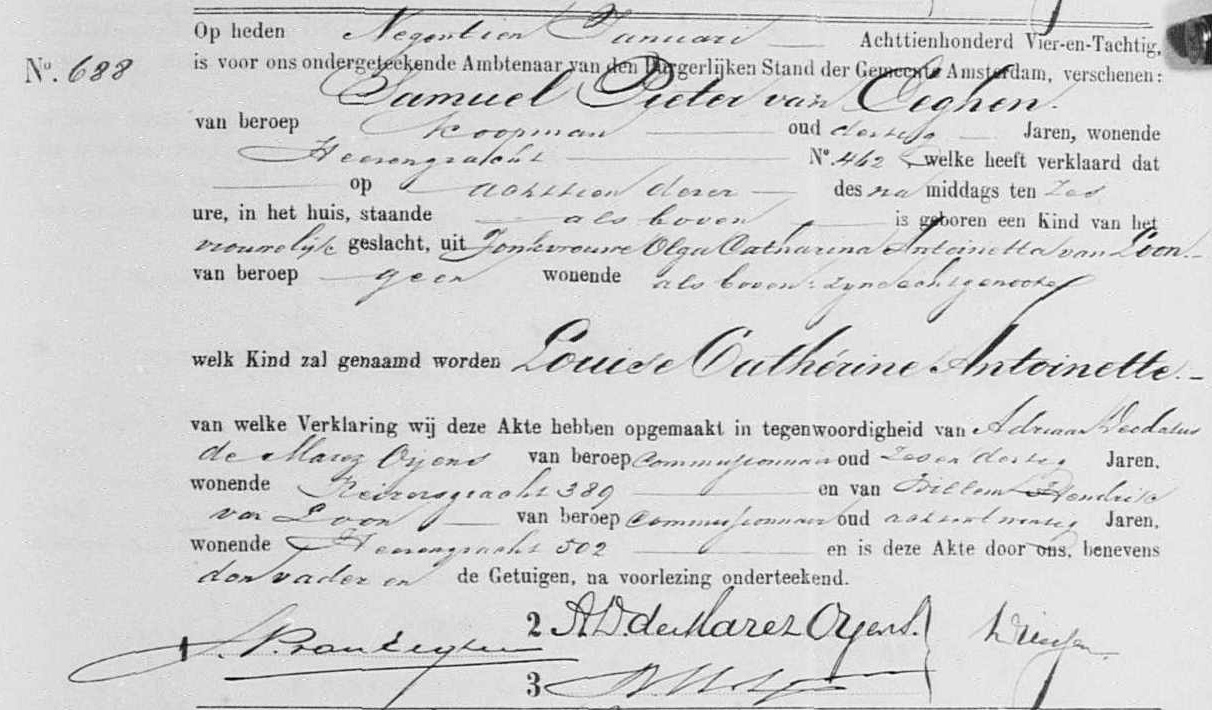 Op heden Negentien Januari Achttienhonderd Vier-en-Tachtig,
No. 688
is voor ons ondergeteekende Ambtenaar van den Burgerlijken Stand der Gemeente Amsterdam, verschenen:
Samuel Pieter van Eeghen.
van beroep Koopman oud dertig Jaren, wonende
Heerengracht No. 462 welke heeft verklaard dat
op achttien dezer des na middags ten zes
ure, in het huis, staande als boven is geboren een Kind van het
vrouwelijk geslacht, uit Jonkvrouwe Olga Catharina Antoinetta van Loon.
van beroep geen wonende als boven: zijn echtgenoote
welk Kind zal genaamd worden Louise Cathérine Antoinette.
van welke Verklaring wij deze Akte hebben opgemaakt in tegenwoordigheid van Adriaan Deodatus
de Marez Oyens van beroep Commissionnair oud zes en dertig Jaren,
wonende Keizersgracht 389 en van Willem Hendrik
van Loon van beroep Commissionnair oud achtentwintig Jaren,
wonende Heerengracht 502 en is deze Akte door ons, benevens
den vader en de Getuigen, na voorlezing onderteekend.
1 S. P. van Eeghen
2 A.D. de Marez Oyens.
3